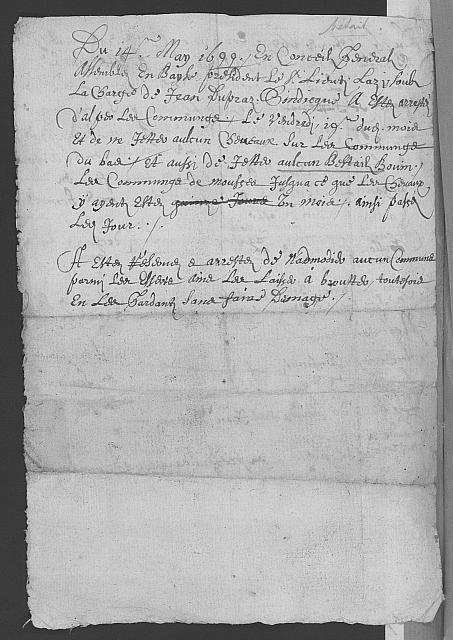 betail
Du 14e May 1699. En Conceil General
Assemblé En Baye president Le Sr Lieutt Lazy soub
La Charge de Jean Dupraz Sindicque A Estez arrestez
d'alper Les Communge Le Vendredi 19e dug. mois
Et de ne Jetter aulcun Chevaux Sur Les Communge
du bas, Et aussi de Jetter aulcun Bestail Bouin
Les Communge de mousses Jusqua ce que Les Chevaux
y ayent Estez quinze Jours Un mois, ainsi passe
Les Jour.
A Estez arrestez de aucun Commune
parmi Les ains Les Laisse a broutter toutefois
En Les Gardant Sans faire Domage